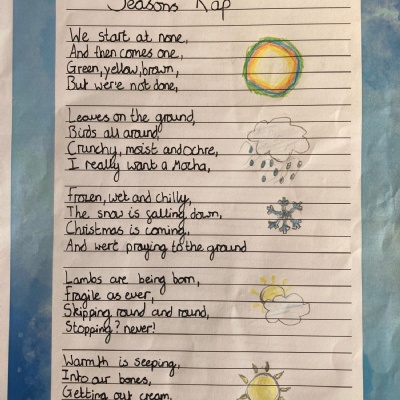 Seasons Rap
We start at none,
And then comes one,
Green, yellow, brown,
But were're not done,
Leaves on the ground,
Birds all around,
Crunchy, moist and ochre,
I really want a Mocha,
Frozen, wet and chilly,
The snow is falling down,
Christmas is coming,
And wert praying to the ground
Lambs are being born,
Fragile as ever,
Skipping round and round,
Stopping? never!
Warmth is seeping,
Into our bones,
Getting out cream,